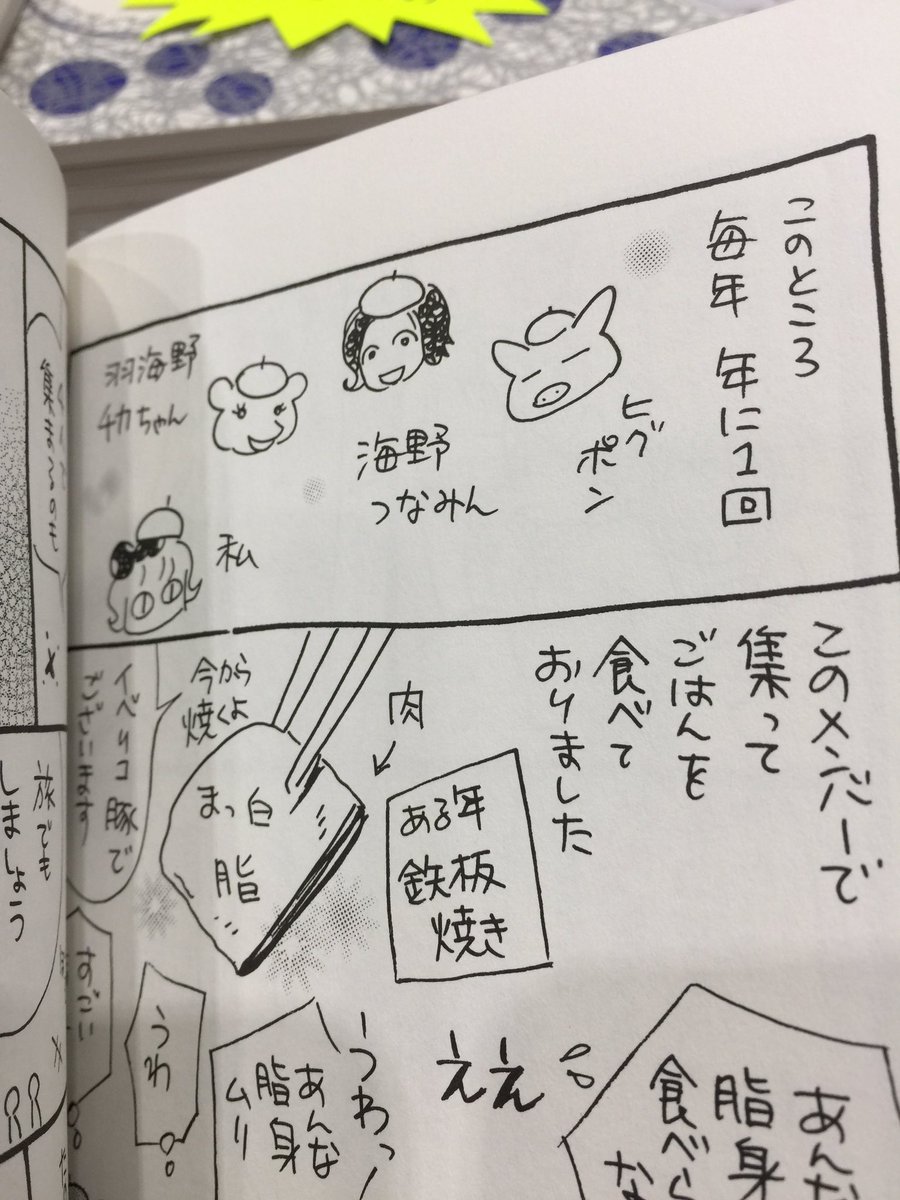 このところ
毎年 年に1回
ヒグ
ポン
海野
つなみん
羽海野
チカちゃん
私
このメンバーで
集って
ごはんを
食べて
おりました
ある年
鉄板
焼き
肉
まっ白
脂
今から
焼くよ
イベリコ豚で
ございます
あんな
脂身
食べら
な
ええ
うわっ
あんな
脂身
ムリ
うわ
旅でも
しましょう